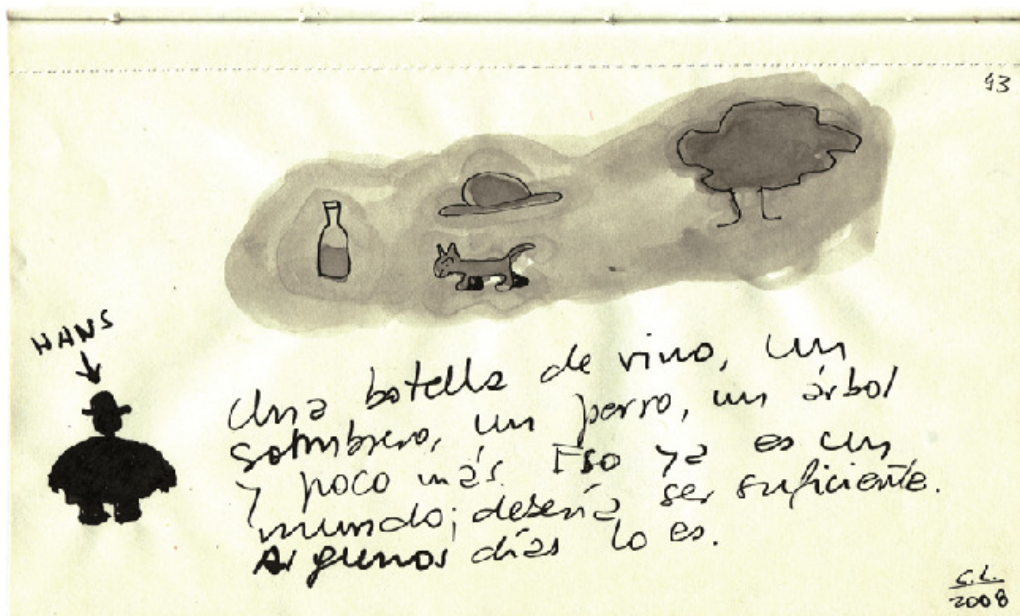 93
HANS
Una botella de vino, un
sombrero, un perro, un árbol
y poco más. Eso ya es un
mundo; debería ser suficiente.
Algunos días lo es.
C.L.
2008